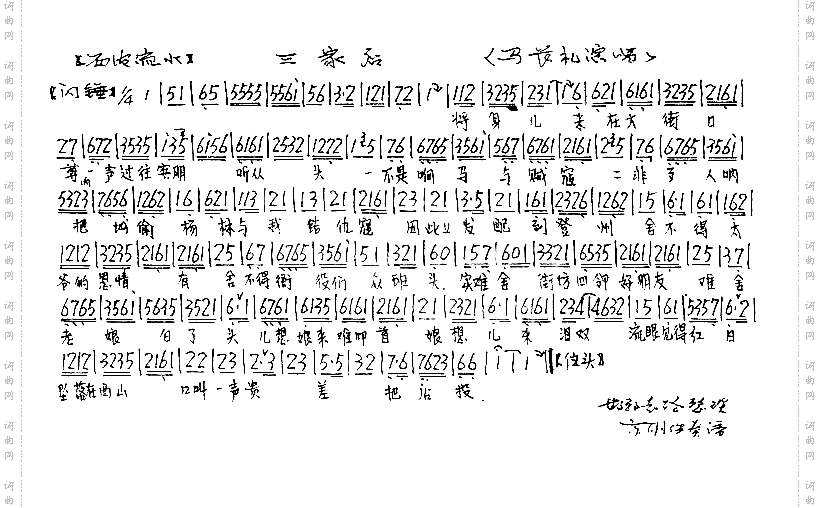 【西皮流水】 三家店 （马长礼演唱）
【闪锤】1/4 1 | 51 | 65 | 5555 | 5561 | 56 | 32 | 121 | 72 | 1 | 112 | 3235 | 231 | 16 | 621 | 6161 | 3235 | 2161 |
将身儿来在大街口
27 | 672 | 3535 | 135 | 6156 | 6161 | 2532 | 1272 | 1 5 | 76 | 6765 | 3561 | 567 | 6761 | 2161 | 2 5 | 76 | 6765 | 3561 |
尊一声过往宾朋听从头一不是响马与贼寇二非是人哪
5323 | 7656 | 1262 | 16 | 621 | 113 | 21 | 13 | 21 | 2161 | 23 | 21 | 3·5 | 21 | 161 | 2376 | 1262 | 15 | 6·1 | 61 | 162 |
把城偷杨林与我结仇寇因此上发配到登州舍不得太
1212 | 3235 | 2161 | 2161 | 25 | 67 | 6765 | 3561 | 51 | 321 | 60 | 157 | 601 | 3321 | 6535 | 2161 | 2161 | 25 | 37 |
爷的恩情有舍不得衙役们众班头实难舍街坊四邻好朋友难舍
6765 | 3561 | 5635 | 3521 | 6·1 | 6761 | 6135 | 6161 | 2161 | 21 | 2321 | 6·1 | 6161 | 234 | 4632 | 15 | 61 | 5357 | 6·2 |
老娘白了头儿想娘来难叩首娘想儿来泪双流眼见得红日
1212 | 3235 | 2161 | 22 | 23 | 2·3 | 23 | 5·5 | 32 | 7·6 | 7623 | 66 | 1 | 1 | 1 ‖【住头】
坠落在西山口叫一声贵差把店投
词曲网